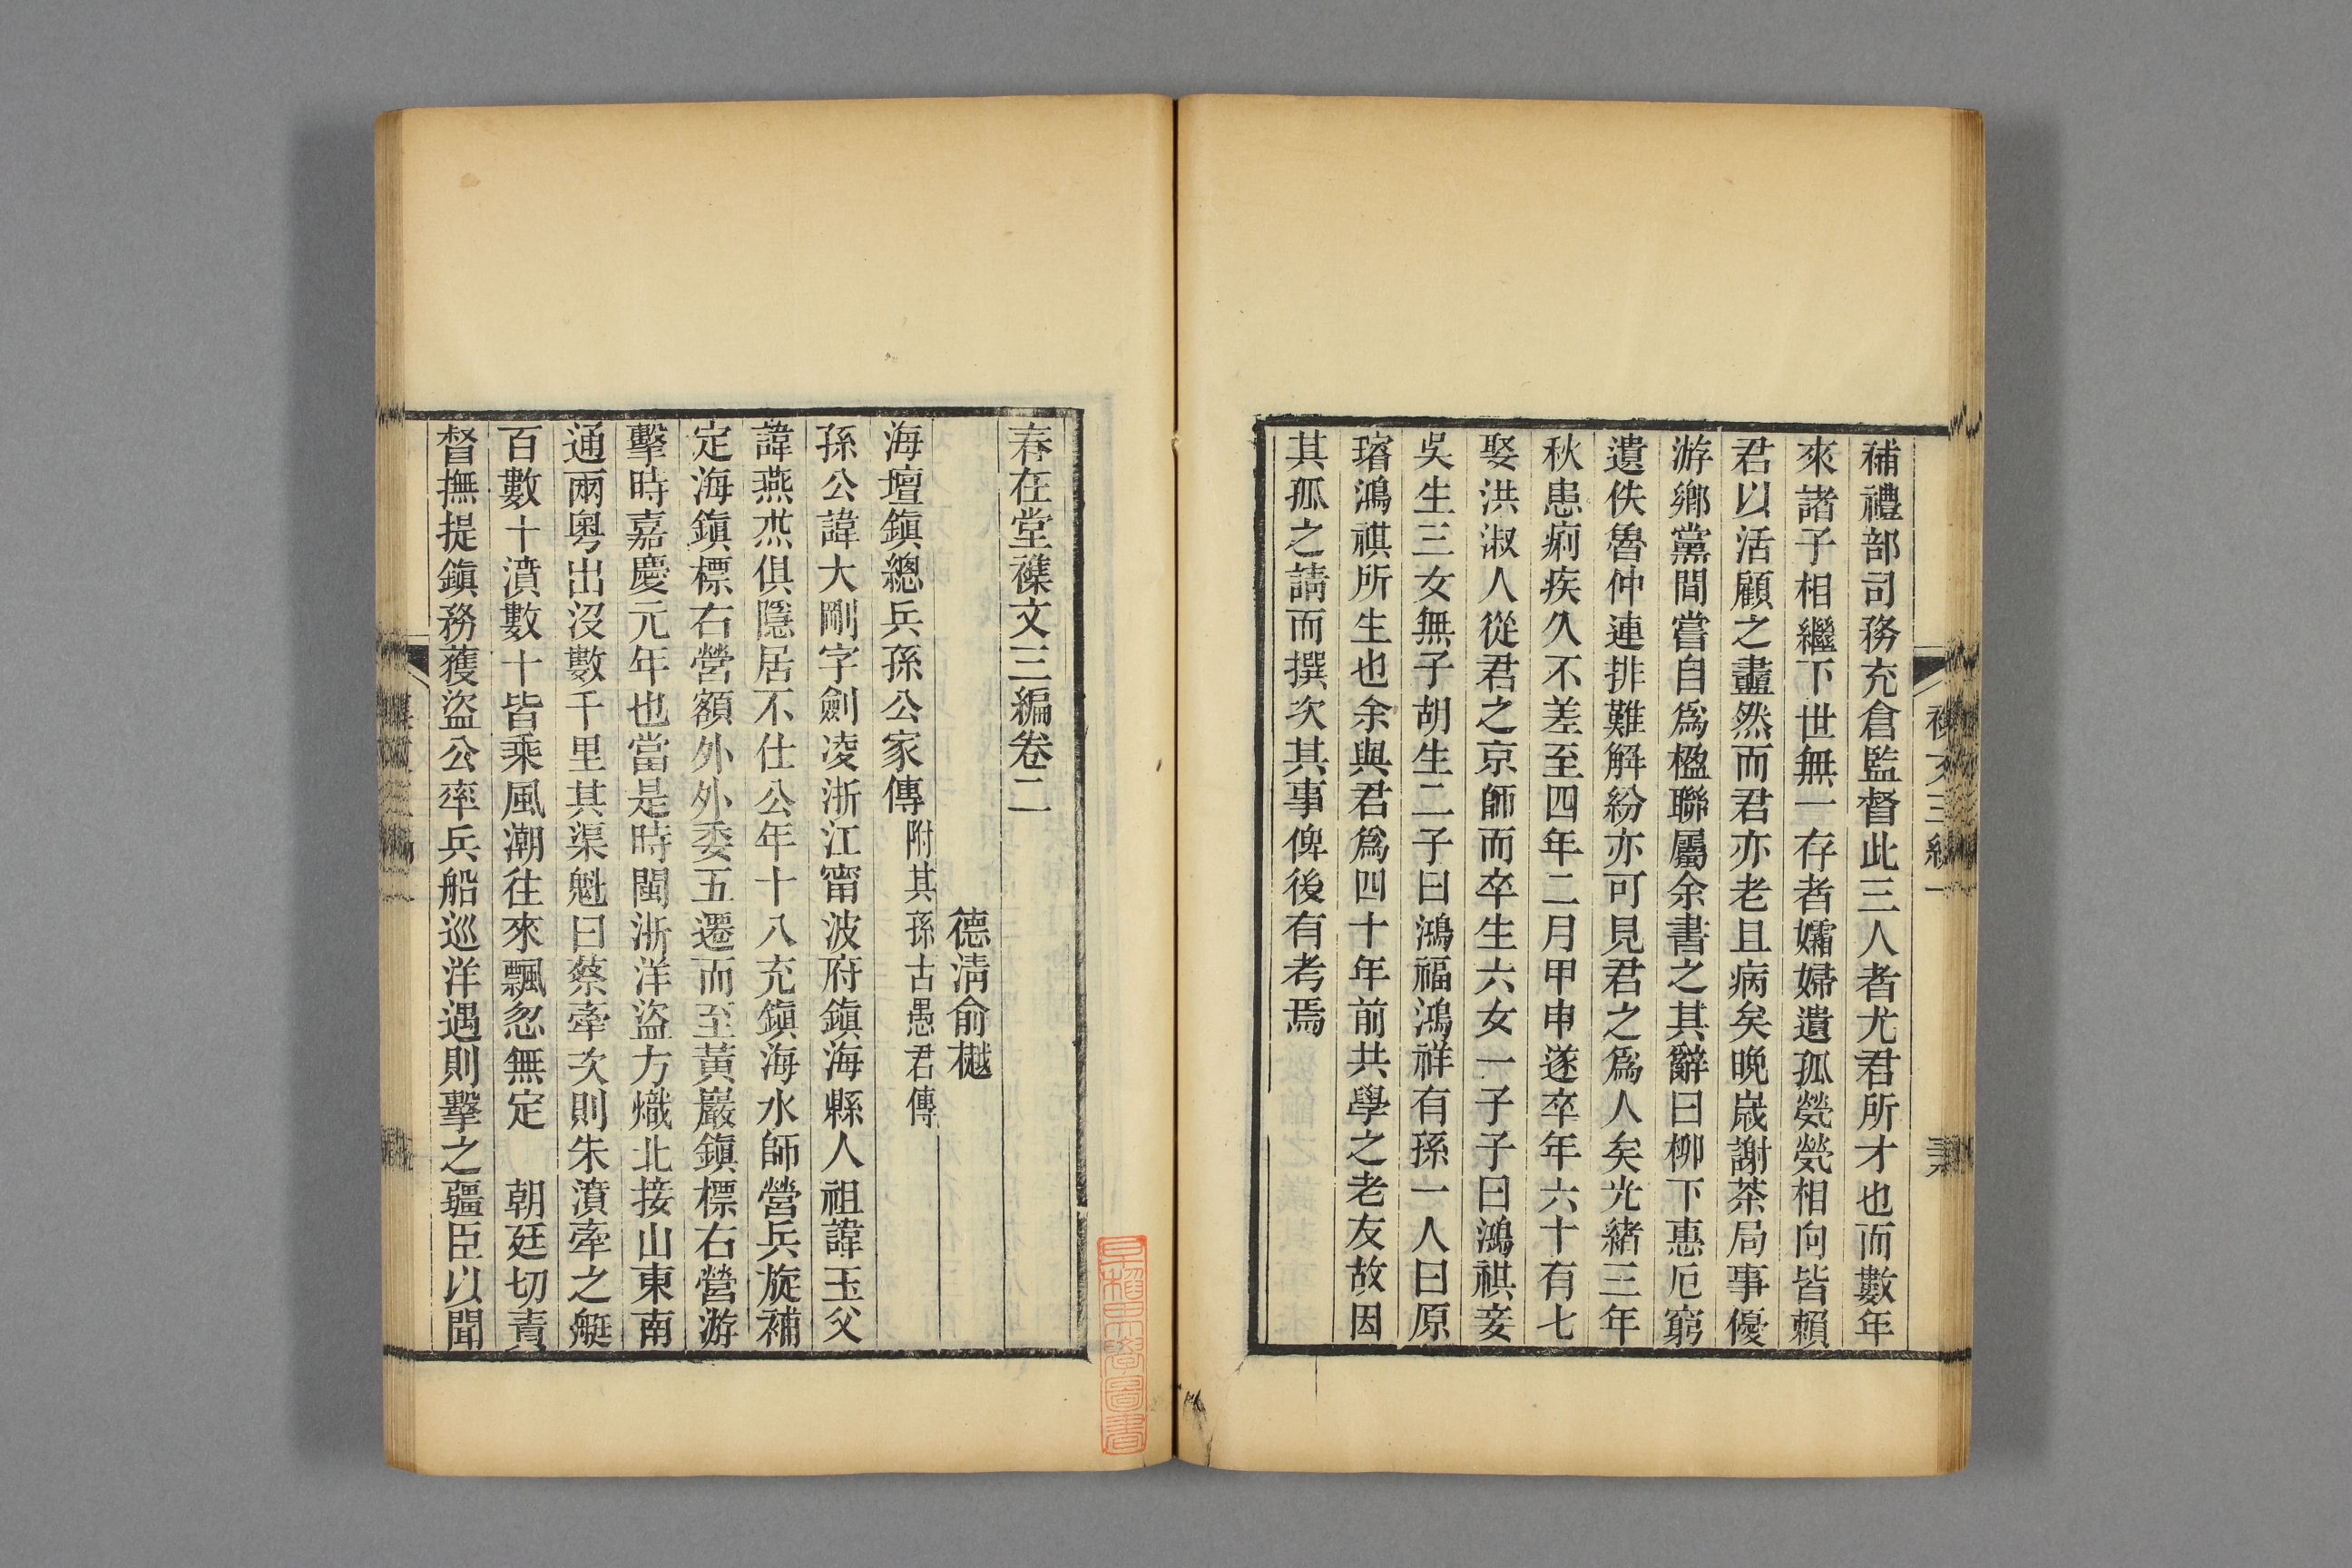 補禮部司務充倉監督此三人者尤君所才也而數年
來諸子相繼下世無一存者孀婦遺孤煢煢相向皆賴
君以活顧之盡然而君亦老且病矣晚歲謝茶局事優
游鄉黨間嘗自爲楹聯屬余書之其辭曰柳下惠厄窮
遺佚魯仲連排難解紛亦可見君之爲人矣光緒三年
秋患痢疾久不差至四年二月甲申遂卒年六十有七
娶洪淑人從君之京師而卒生六女一子子曰鴻祺妾
吳生三女無子胡生二子曰鴻福鴻祥有孫一人曰原
瑃鴻祺所生也余與君爲四十年前共學之老友故因
其孤之請而撰次其事俾後有考焉
春在堂襍文三編卷二
德淸俞樾
海壇鎭總兵孫公家傳附其孫古愚君傳
孫公諱大剛字劍凌浙江甯波府鎭海縣人祖諱玉父
諱燕杰俱隱居不仕公年十八充鎭海水師營兵旋補
定海鎭標右營額外外委五遷而至黃巖鎭標右營游
擊時嘉慶元年也當是時閩浙洋盜方熾北接山東南
通兩粵出沒數千里其渠魁曰蔡牽次則朱濆牽之艇
百數十濆數十皆乘風潮往來飄忽無定　朝廷切責
督撫提鎭務獲盜公率兵船巡洋遇則擊之疆臣以聞